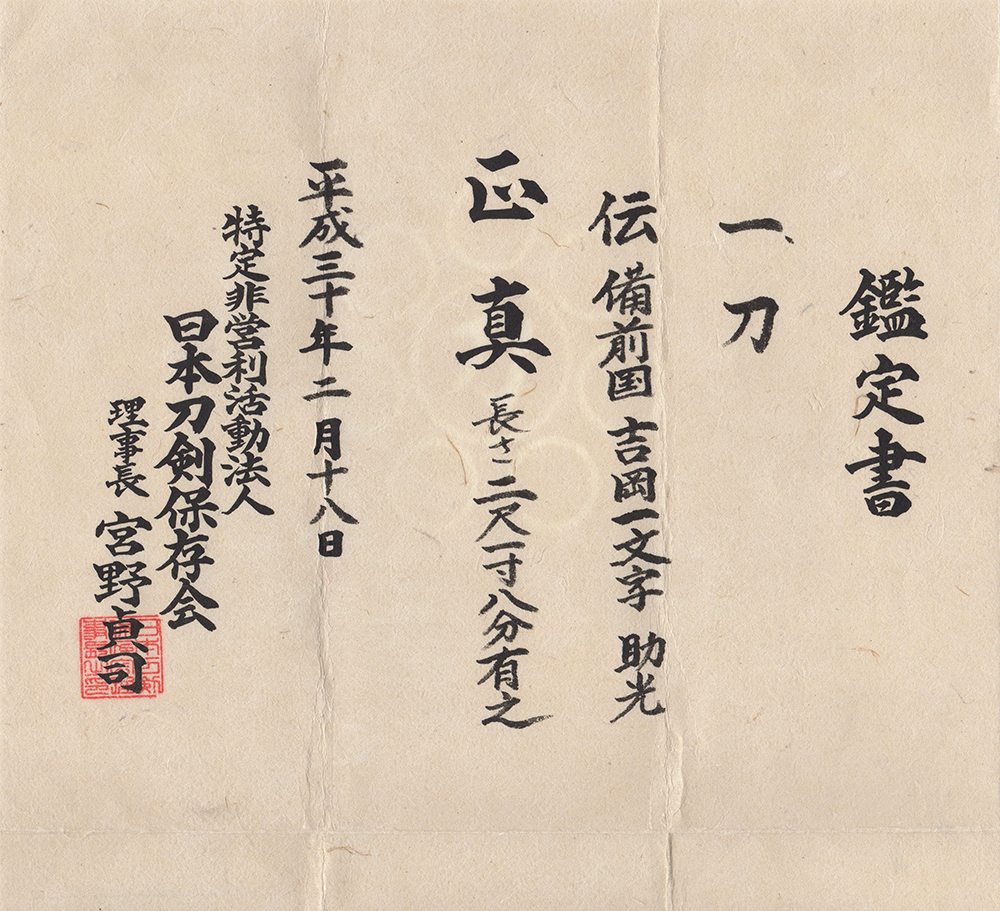 鑑定書
一、刀
伝 備前国 吉岡一文字 助光
正真 長さ二尺一寸八分有之
平成三十年二月十八日
特定非営利活動法人
日本刀剣保存会
理事長 宮野貞司